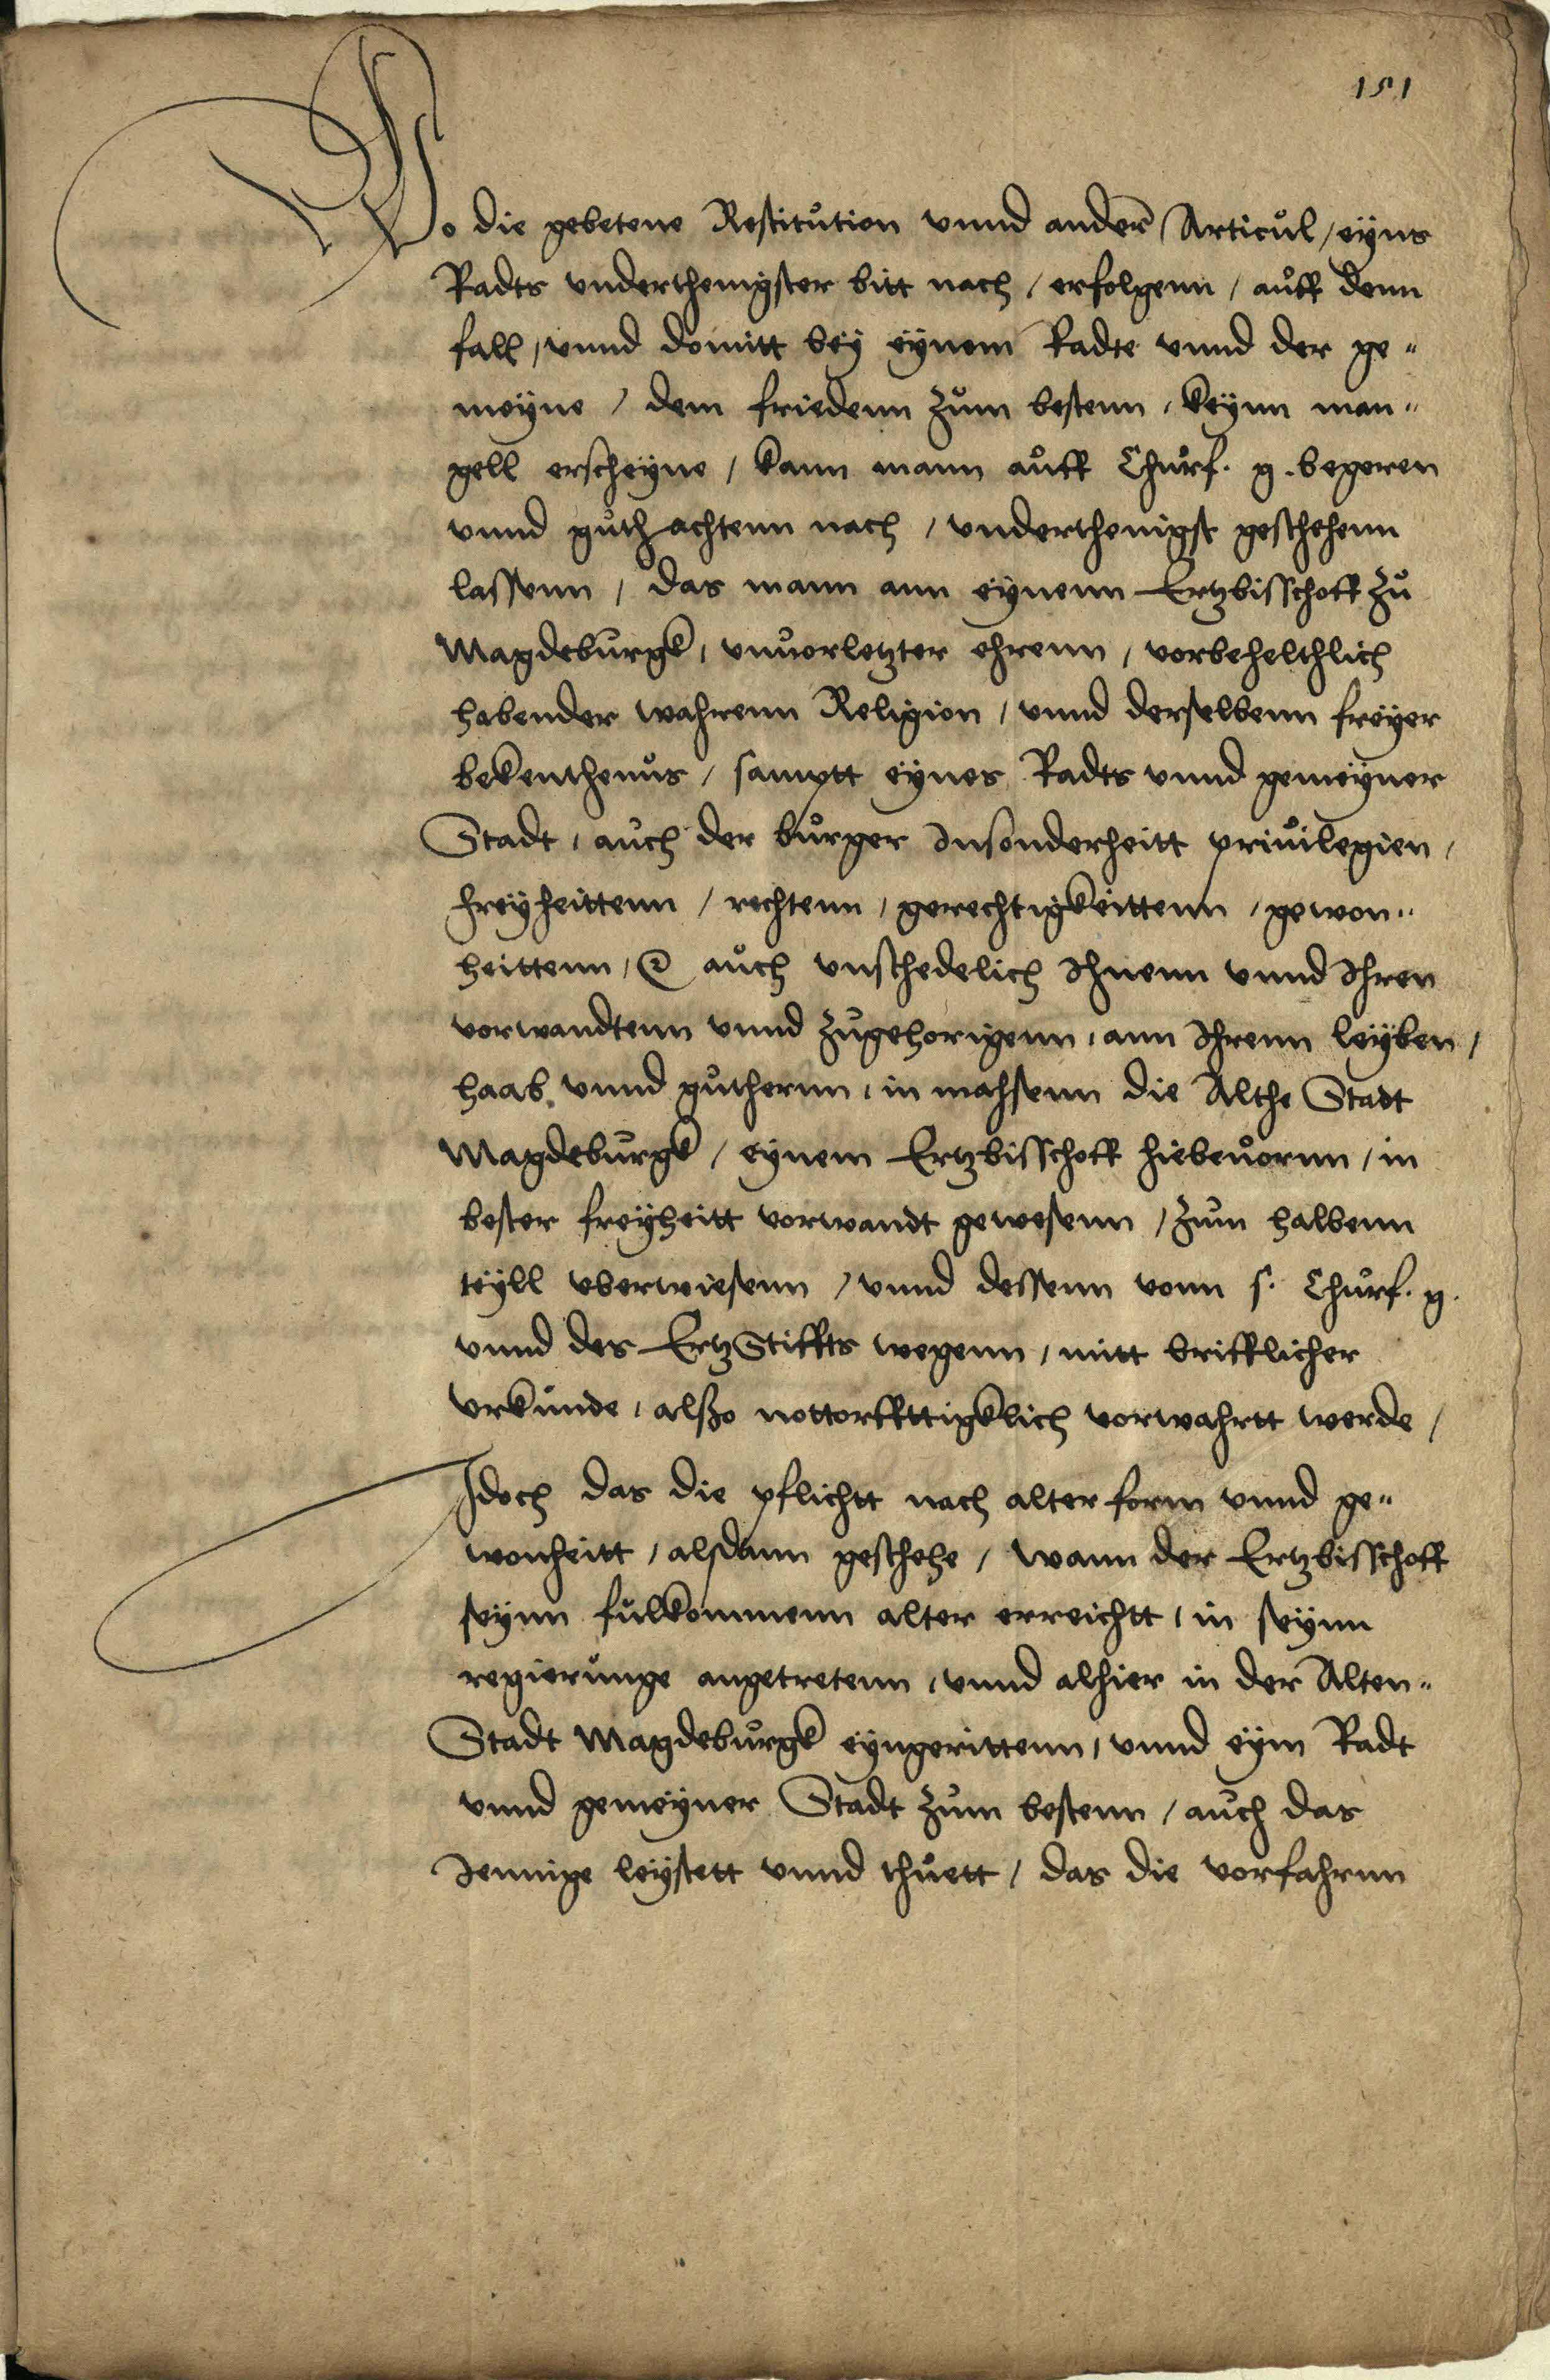 151
Wo die gebetene Restitution vnnd andere Articul / eyns
Radts vnderthenigster bitt nach / erfolgenn / auff denn
fall / vnnd domitt bey eynem Radte vnnd der ge-
meyne / dem friedenn zum bestenn / keynn man-
gell erscheyne / kann mann auff Churf. g. begeren
vnnd guth achtenn nach / vnderthenigst geschehenn
lassenn / das mann ann eynenn Ertzbisschoff zu
Magdeburgk / vnuorletzter ehrenn / vorbehelthlich
habender wahrenn Religion / vnnd derselbenn freyer
bekenthenus / samptt eynes Radts vnnd gemeyner
Stadt / auch der burger Insonderheitt priuilegien /
freyheittenn / rechtenn / gerechtigkeittenn / gewon-
heittenn / ꝛc auch vnschedelich Ihnenn vnnd Ihren
vorwandtenn vnnd zugehorigenn / ann Ihrenn leyben /
haab vnnd guthernn / in mahsenn die Althe Stadt
Magdeburgk / eynem Ertzbisschoff hiebeuornn / in
bester freyheitt vorwandt gewesenn / zum halbenn
teyll vberwiesenn / vnnd dessenn vonn s. Churf. g.
vnnd des ErtzStiffts wegenn / mitt brifflicher
vrkunde / alßo nottorffttigklich vorwahrtt werde /
Idoch das die pflichtt nach alter form vnnd ge-
wonheitt / alsdann geschehe / wann der Ertzbisschoff
seynn fulkommenn alter erreichtt / in seynn
regierunge angetretenn / vnnd alhier in der Alten-
Stadt Magdeburgk eyngerittenn / vnnd eym Radt
vnnd gemeyner Stadt zum bestenn / auch das
Jennige leystett vnnd thuett / das die vorfahrnn